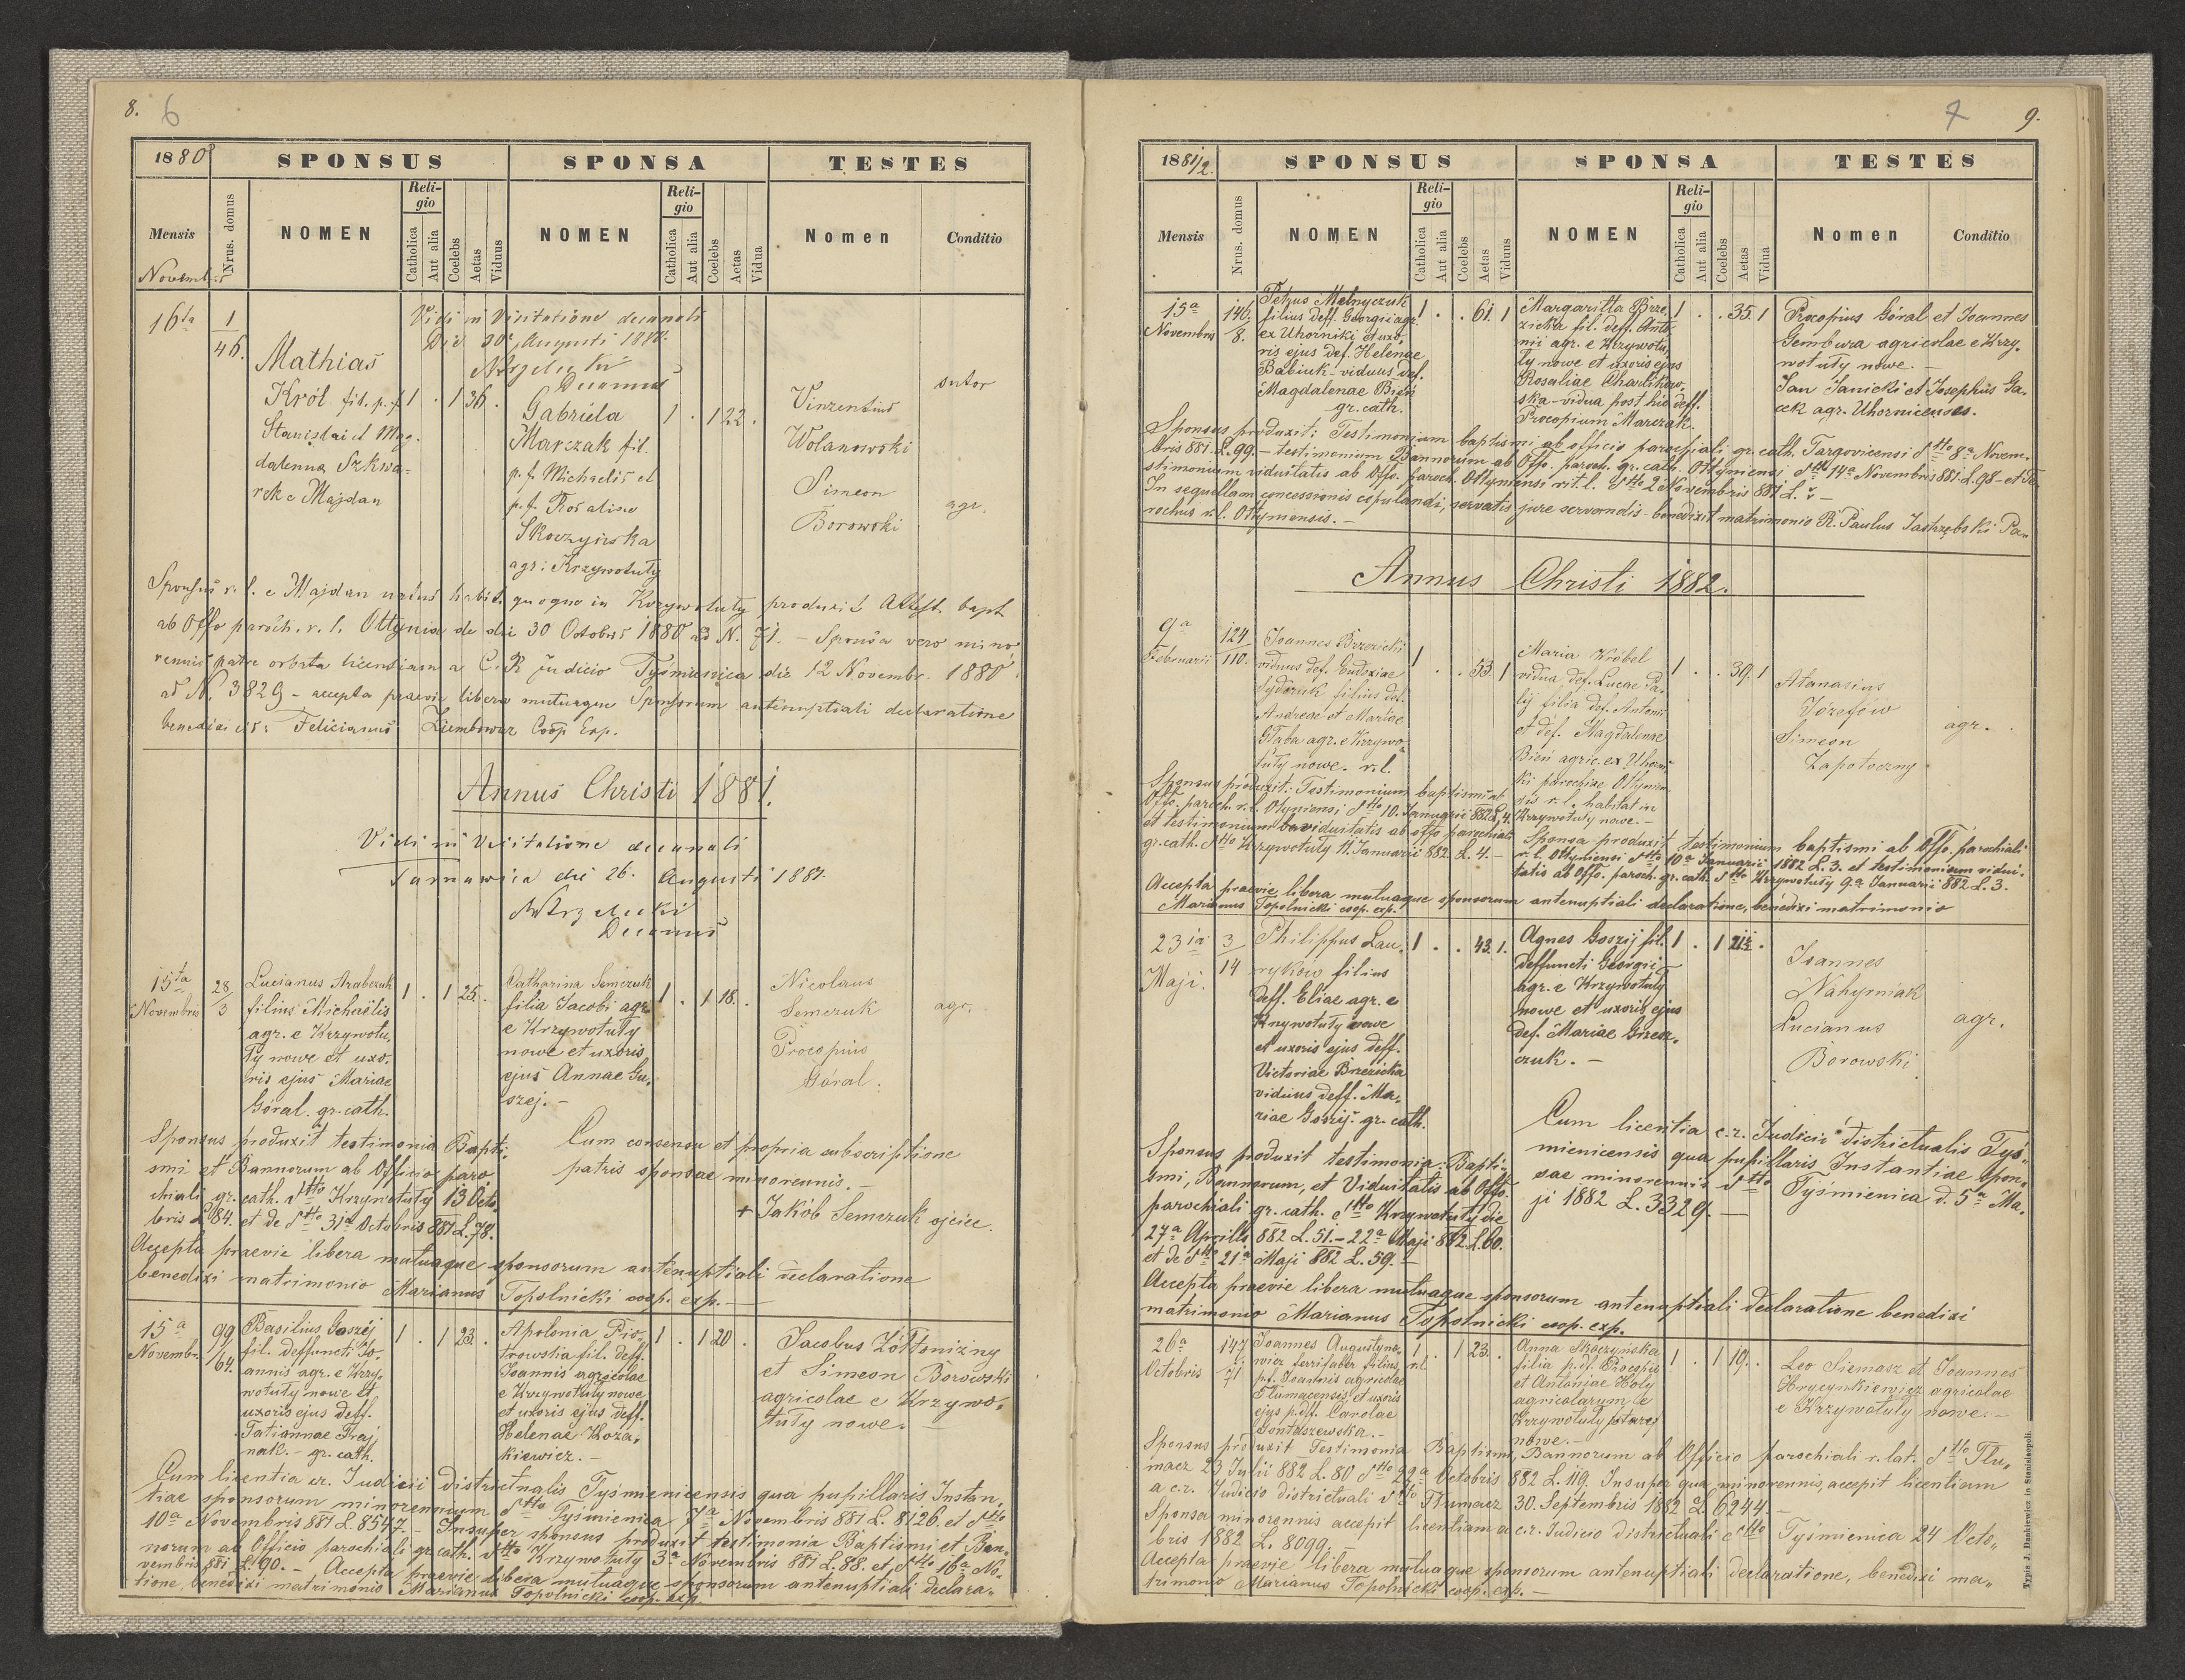 8. 6
1880
SPONSUS SPONSA TESTES
Mensis
Nrus. domus
NOMEN
Religio
Catholica
Aut alia
Coelebs
Aetas
Viduus
NOMEN
Religio
Catholica
Aut alia
Coelebs
Aetas
Vidua
Nomen
Conditio
Novembris
16ta
1
46.
Vidi in Visitatione decanali
Die 20 Augusti 1880.
Decanus
Mathias
Król fil. p. f.
Stanislai et Mag-
dalenna Szkwa-
rek e Majdan
1 . 1 36 .
Gabriela
Marczak fil.
p. f. Michaelis et
p. f. Rosaliae
Skoczyńska
agr: Krzywotuły
1 . 1 22 .
Vinzentius
Wolanowski
Simeon
Borowski
sutor
agr.
Sponsus r. l. e Majdan natus habit. quoque in Krzywotuły produxit Attest. bapt
ab Offo paroch. r. l. Ottynia de die 30 Octobris 1880 ad N. 71. – Sponsa vero mino
rennis patre orbata licentiam a C. R Judicio Tyśmienica die 12 Novembr. 1880
ad N. 3829 – accepta praevie libera mutuaque Sponsorum antenuptiali declaratione
benedixi Felicianus Ziembowicz Coop Exp.
Annus Christi 1881.
Vidi in Visitatione decanali
Tarnawica die 26. Augusti 1881.
Decanus
15ta
Novembris
28
3
Lucianus Arabczuk
filius Michaëlis
agr. e Krzywotu-
ły nowe et uxo-
ris ejus Mariae
Góral. gr. cath.
1 . 1 25 .
Catharina Semczuk
filia Jacobi agr.
e Krzywotuły
nowe et uxoris
ejus Annae Gu-
szej. –
1 . 1 18 .
Nicolaus
Semczuk
Procopius
Góral.
agr.
Sponsus produxit testimonia Bapti-
smi et Bannorum ab Officio paro
chiali gr. cath. dtto Krzywotuły 13 Octo
bris L 84. et de dtto 31a Octobris 881 L. 78.
Cum consensu et propria subscriptione
patris sponsae minorennis. –
+ Jakób Semczuk ojciec.
Accepta praevie libera mutuaque sponsorum antenuptiali declaratione
benedixi matrimonio Marianus Topolnicki coop. exp. –
15a
Novembr.
99
64.
Basilius Goszéj
fil. deffuncti Jo-
annis agr. e Krzy-
wotuły nowe et
uxoris ejus deff.
Tatiannae Traj
nak. – gr. cath.
1 . 1 23 .
Apolonia Pio-
trowska fil. deff.
Joannis agricolae
e Krzywotuły nowe
et uxoris ejus deff.
Helenae Koza-
kiewicz. –
1 . 1 20 .
Jacobus Żółtonizny
et Simeon Borowski
agricolae e Krzywo-
tuły nowe. –
Cum licentia cr. Judicii districtualis Tyśmienicensis qua pupillaris Instan-
tiae sponsorum minorennium dtto Tyśmienica 7a Novembris 881 L. 8126. et dtto
10a Novembris 881 L. 8547. – Insuper sponsus produxit testimonia Baptismi et Ban-
norum ab Officio parochiali gr. cath. dtto Krzywotuły 3a Novembris 881 L. 88. et dtto 16a No-
vembris 881 L. 90. – Accepta praevie libera mutuaque sponsorum antenuptiali declara-
tione, benedixi matrimonio Marianus Topolnicki coop. exp.
7 9.
1881/2.
SPONSUS SPONSA TESTES
Mensis
Nrus. domus
NOMEN
Religio
Catholica
Aut alia
Coelebs
Aetas
Viduus
NOMEN
Religio
Catholica
Aut alia
Coelebs
Aetas
Vidua
Nomen
Conditio
15a
Novembris
146.
8.
Petrus Melnyczuk
filius deff. Georgii agr.
ex Uhorniki et uxo-
ris ejus def. Helenae
Babiuk – viduus def.
Magdalenae Bień
gr. cath.
1 . . 61. 1
Margaritta Brze-
zicka fil. deff. Anto-
nii agr. e Krzywotu-
ły nowe et uxoris ejus
Rosaliae Charlikow-
ska – vidua post hic deff.
Procopium Marczak.
1 . . 35. 1
Procopius Góral et Joannes
Gembura agricolae e Krzy-
wotuły nowe. –
Jan Janicki et Josephus Ga-
cek agr. Uhornicenses.
Sponsus produxit: Testimonium baptismi ab officio parochiali gr. cath. Targovicensi dtto 8a Novem-
bris 881. L. 99. – testimonium Bannorum ab Offo. paroch. gr. cath. Ottyniensi dtto 14a Novembris 881. L. 98 – et Te-
stimonium viduitatis ab Offo. paroch. Ottyniensi rit. l. dtto 2 Novembris 881 L. –
In sequellam concessionis copulandi, servatis jure servandis – benedixit matrimonio R. Paulus Jastrzębski Pa-
rochus r. l. Ottyniensis. –
Annus Christi 1882.
9a
Februarii
124
110.
Joannes Brzezicki
viduus def. Eudoxiae
Sydoruk filius def.
Andreae et Mariae
Głaba agr. e Krzywo-
tuły nowe. r. l.
1 . . 53. 1
Maria Wróbel
vidua def. Lucae Pa-
lij filia def. Antonii
et def. Magdalenae
Bień agric. ex Uhorni-
ki parochiae Ottynien
sis r. l. habitat in
Krzywotuły nowe. –
1 . . 39. 1
Atanasius
Józefow
Simeon
Zapotoczny
agr.
Sponsus produxit: Testimonium baptismi ab
Offo. paroch. r. l. Otyniensi dtto 10. Januarii 882 L. 4.
et testimonium viduitatis ab offo parochiali
gr. cath. dtto Krzywotuły 11. Januarii 882. L. 4. –
Sponsa produxit testimonium baptismi ab Offo. parochiali
r. l. Ottyniensi dtto 10a Januarii 1882 L. 3. et testimonium vidui-
tatis ab Offo. paroch. gr. cath. dtto Krzywotuły 9a Januarii 882 L. 3.
Accepta praevie libera mutuaque sponsorum antenuptiali declaratione, benedixi matrimonio
Marianus Topolnicki coop. exp.
23ia
Maji.
3
14
Philippus Lau-
rykow filius
deff. Eliae agr. e
Krzywotuły nowe
et uxoris ejus deff.
Victoriae Brzezicka
viduus deff. Ma-
riae Goszij. gr. cath.
1 . . 43. 1.
Agnes Goszij fil.
deffuncti Georgii
agr. e Krzywotuły
nowe et uxoris ejus
def. Mariae Grzesz-
czuk. –
1 . 1 21½ .
Joannes
Nahyrniak
Lucianus
Borowski
agr.
Sponsus produxit testimonia: Bapti-
smi, Bannorum, et Viduitatis ab Offo.
parochiali gr. cath. dtto Krzywotuły die
27a Aprilis 882 L. 51. – 22a Maji 882 L. 60.
et de dtto 21a Maji 882 L. 59. –
Cum licentia c. r. Judicii districtualis Tyś-
mienicensis qua pupillaris Instantiae spon-
sae minorennis dtto Tyśmienica d. 5a Ma-
ji 1882 L. 3329. –
Accepta praevie libera mutuaque sponsorum antenuptiali declaratione benedixi
matrimonio Marianus Topolnicki coop. exp.
26a
Octobris
147
71
Joannes Augustyno-
wicz ferrifaber filius
pf. Joannis agricolae
Tłumacensis et uxoris
ejus p. df. Carolae
Gontaszewska. –
r. l.
1 . 1 23 .
Anna Skoczyńska
filia p. df. Procopii
et Antoniae Holy
agricolarum e
Krzywotuły stare)
nowe. –
1 . 1 19. .
Leo Siemasz et Joannes
Hrycynkiewicz agricolae
e Krzywotuły nowe. –
Sponsus produxit Testimonia Baptismi, Bannorum ab Officio parochiali r. lat. dtto Tłu-
macz 23 Julii 882 L. 80 dtto 22a Octobris 882 L. 119. Insuper qua minorennis, accepit licentiam
a c. r. Judicio districtuali dtto Tłumacz 30. Septembris 1882 L. 6244. –
Sponsa minorennis accepit licentiam a c. r. Judicio districtuali dtto Tyśmienica 24 Octo-
bris 1882 L. 8099. –
Accepta praevie libera mutuaque sponsorum antenuptiali declaratione, benedixi ma-
trimonio Marianus Topolnicki coop. exp. –
Typis J. Dankiewicz in Stanislopoli.